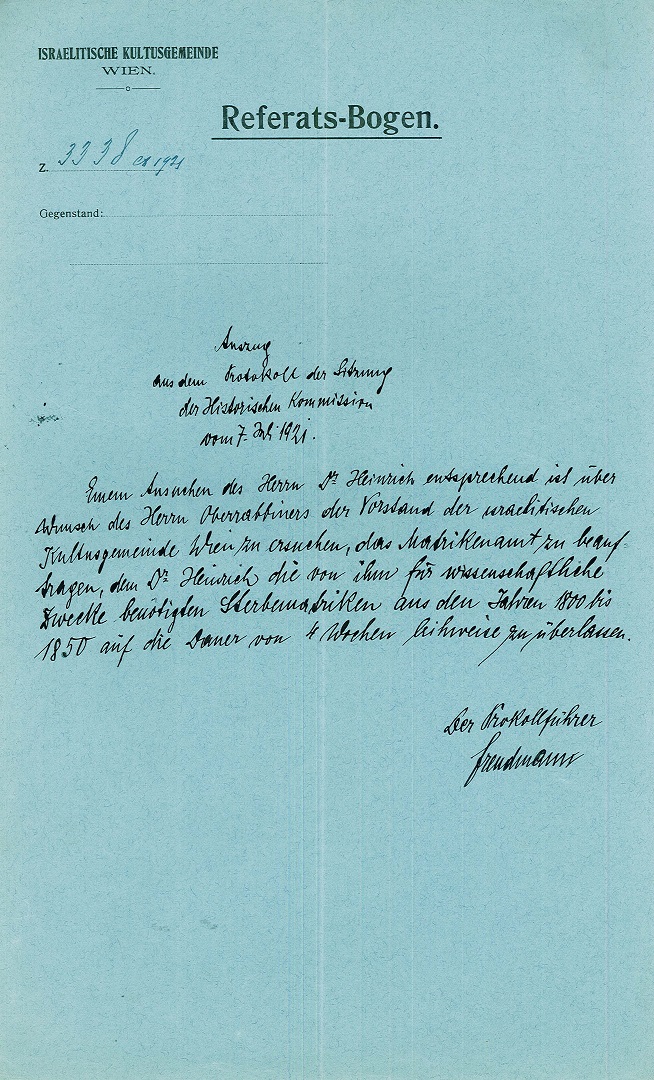 ISRAELITISCHE KULTUSGEMEINDE
WIEN.
Referats-Bogen.
Z. 3338 ex 1921
Gegenstand:
Auszug
aus dem Protokoll der Sitzung
der Historischen Kommission
vom 7. Juli 1921.
Einem Ansuchen des Herrn Dr Heinrich entsprechend ist über
Wunsch des Herrn Oberrabbiners der Vorstand der israelitischen
Kultusgemeinde Wien zu ersuchen, das Matrikenamt zu beauf-
tragen, dem Dr Heinrich die von ihm für wissenschaftliche
Zwecke benötigten Sterbematriken aus den Jahren 1800 bis
1850 auf die Dauer von 4 Wochen leihweise zu überlassen.
Der Prokollführer